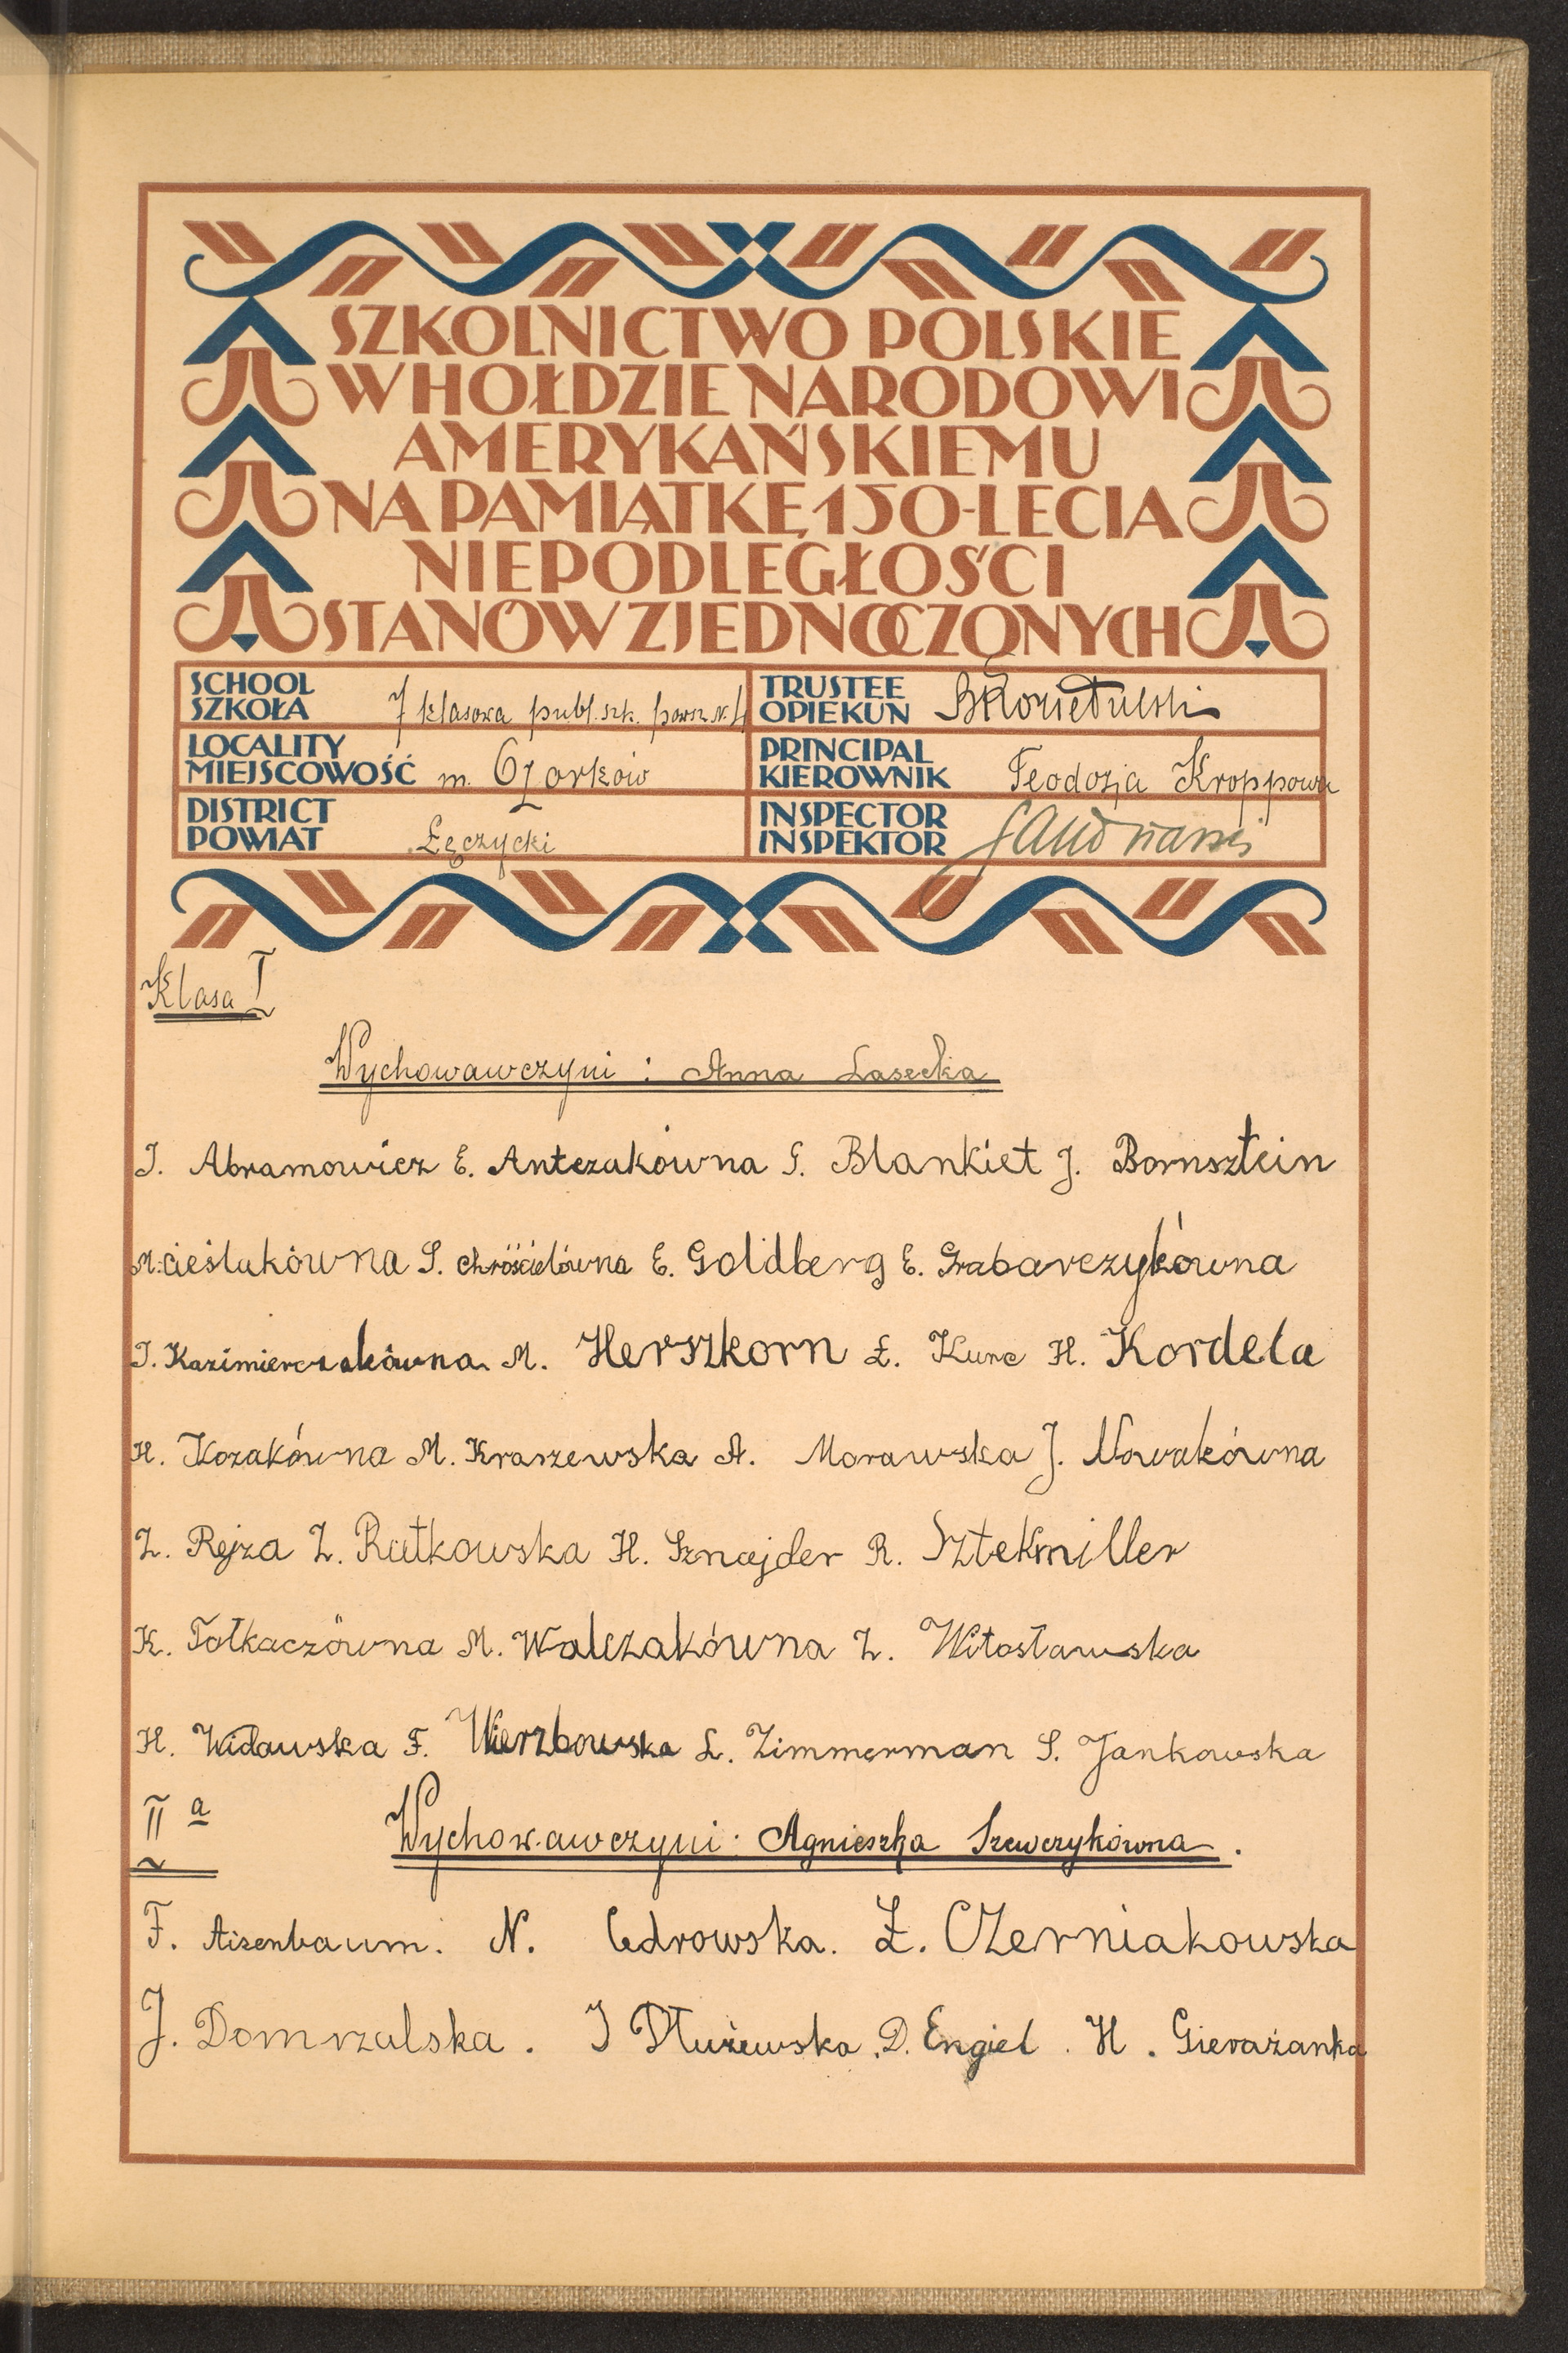 SZKOLNICTWO POLSKIE
W HOŁDZIE NARODOWI
AMERYKAŃSKIEMU
NA PAMIĄTKĘ 150-LECIA
NIEPODLEGŁOŚCI
STANÓW ZJEDNOCZONYCH
SCHOOL
SZKOŁA 7 klasowa publ. szk. powsz. N. 4
TRUSTEE
OPIEKUN
LOCALITY
MIEJSCOWOŚĆ m. Ozorków
PRINCIPAL
KIEROWNIK Teodozja Kroppowa
DISTRICT
POWIAT Łęczycki
INSPECTOR
INSPEKTOR
Klasa I
Wychowawczyni : Anna Lasecka
I. Abramowicz E. Antczakówna G. Blankiet J. Bornsztein
M. Cieślukówna S. Chróścielówna E. Goldberg E. Grabarczykówna
I. Kazimierczakówna M. Herszkorn Ł. Kurc H. Kordela
H. Kozakówna M. Kraszewska A. Morawska J. Nowakówna
Z. Rejza Z. Rutkowska H. Sznajder R. Sztekmiller
K. Tołkaczówna M. Walczakówna Z. Witosławska
H. Widawska F. Wierzbowska L. Zimmerman S. Jankowska
II a
Wychowawczyni : Agnieszka Szewczykówna.
F. Aizenbaum. N. Cedrowska. Ł. Czerniakowska
J. Domrzalska. I Dłużewska. D. Engiel. H. Gierażanka